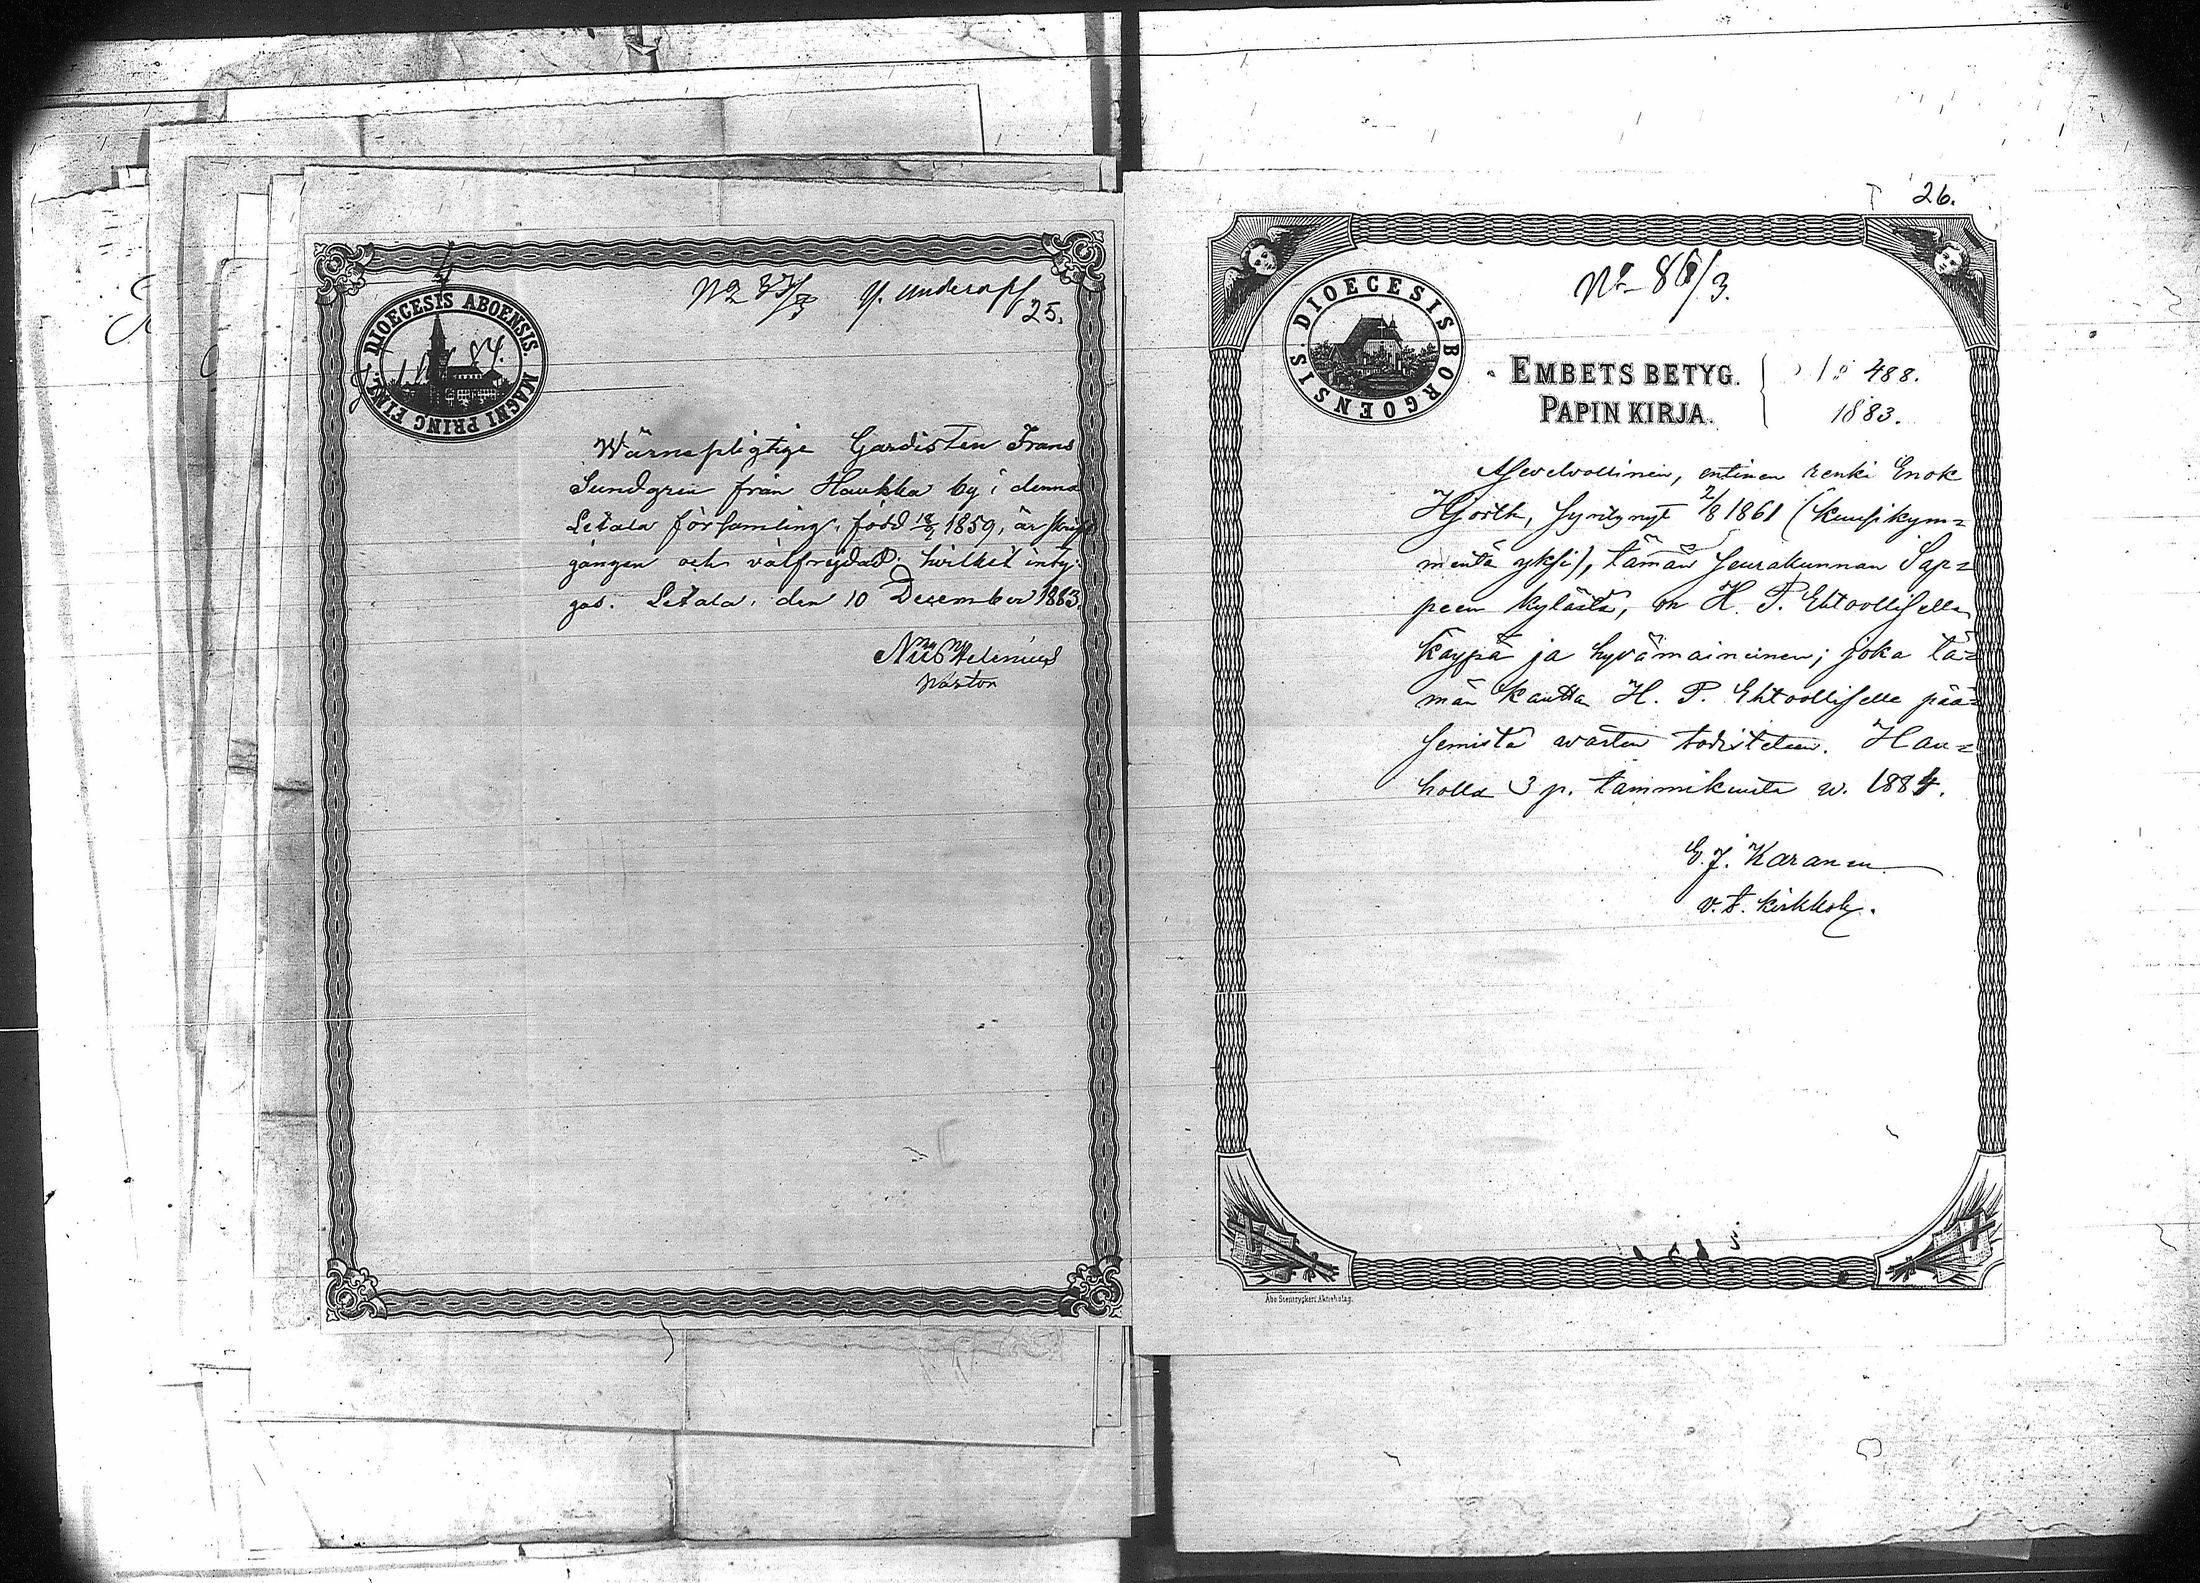 No 37/3 Gf. underoff
25.
DIOECESIS ABOENSIS. MAGNI PRINC FINL.
84.
Wärnepligtige Gardisten Frans
Sundgren från Haukka by i denna
Letala församling, född 18/9 1859, är skrift
gången och välfrejdad, hvilket inty-
gas. Letala, den 10 December 1883.
Nils Helenius
Pastor
26.
No 86/3.
DIOECESIS BORGOENSIS.
EMBETS BETYG.
PAPIN KIRJA.
No 488.
1883.
Asevelvollinen, entinen renki Enok
Hjorth, syntynyt 2/8 1861 (kuusikym=
mentä yksi), tämän seurakunnan Sap=
peen kylästä, on H. P. Ehtoollisella
käypä ja hyvämaineinen; joka tä=
män kautta H. P. Ehtoolliselle pää=
semistä warten todistetaan. Hau=
holla 3 p. tammikuuta w. 1884.
E. J. Karanen
v. t. kirkkoh.
Åbo Stentryckeri Aktiebolag.